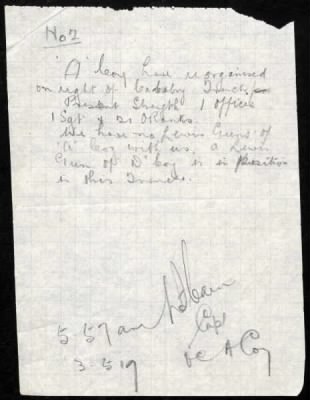 No 2
'A' Coy have reorganised
on right of Trench.
Present Strength 1 Officer
1 Sgt & 21 O Ranks.
We have no Lewis Guns of
'A' Coy with us, a Lewis
Gun of D Coy is in position
in this Trench.
5.57 am
Capt
3-5-17 OC A Coy